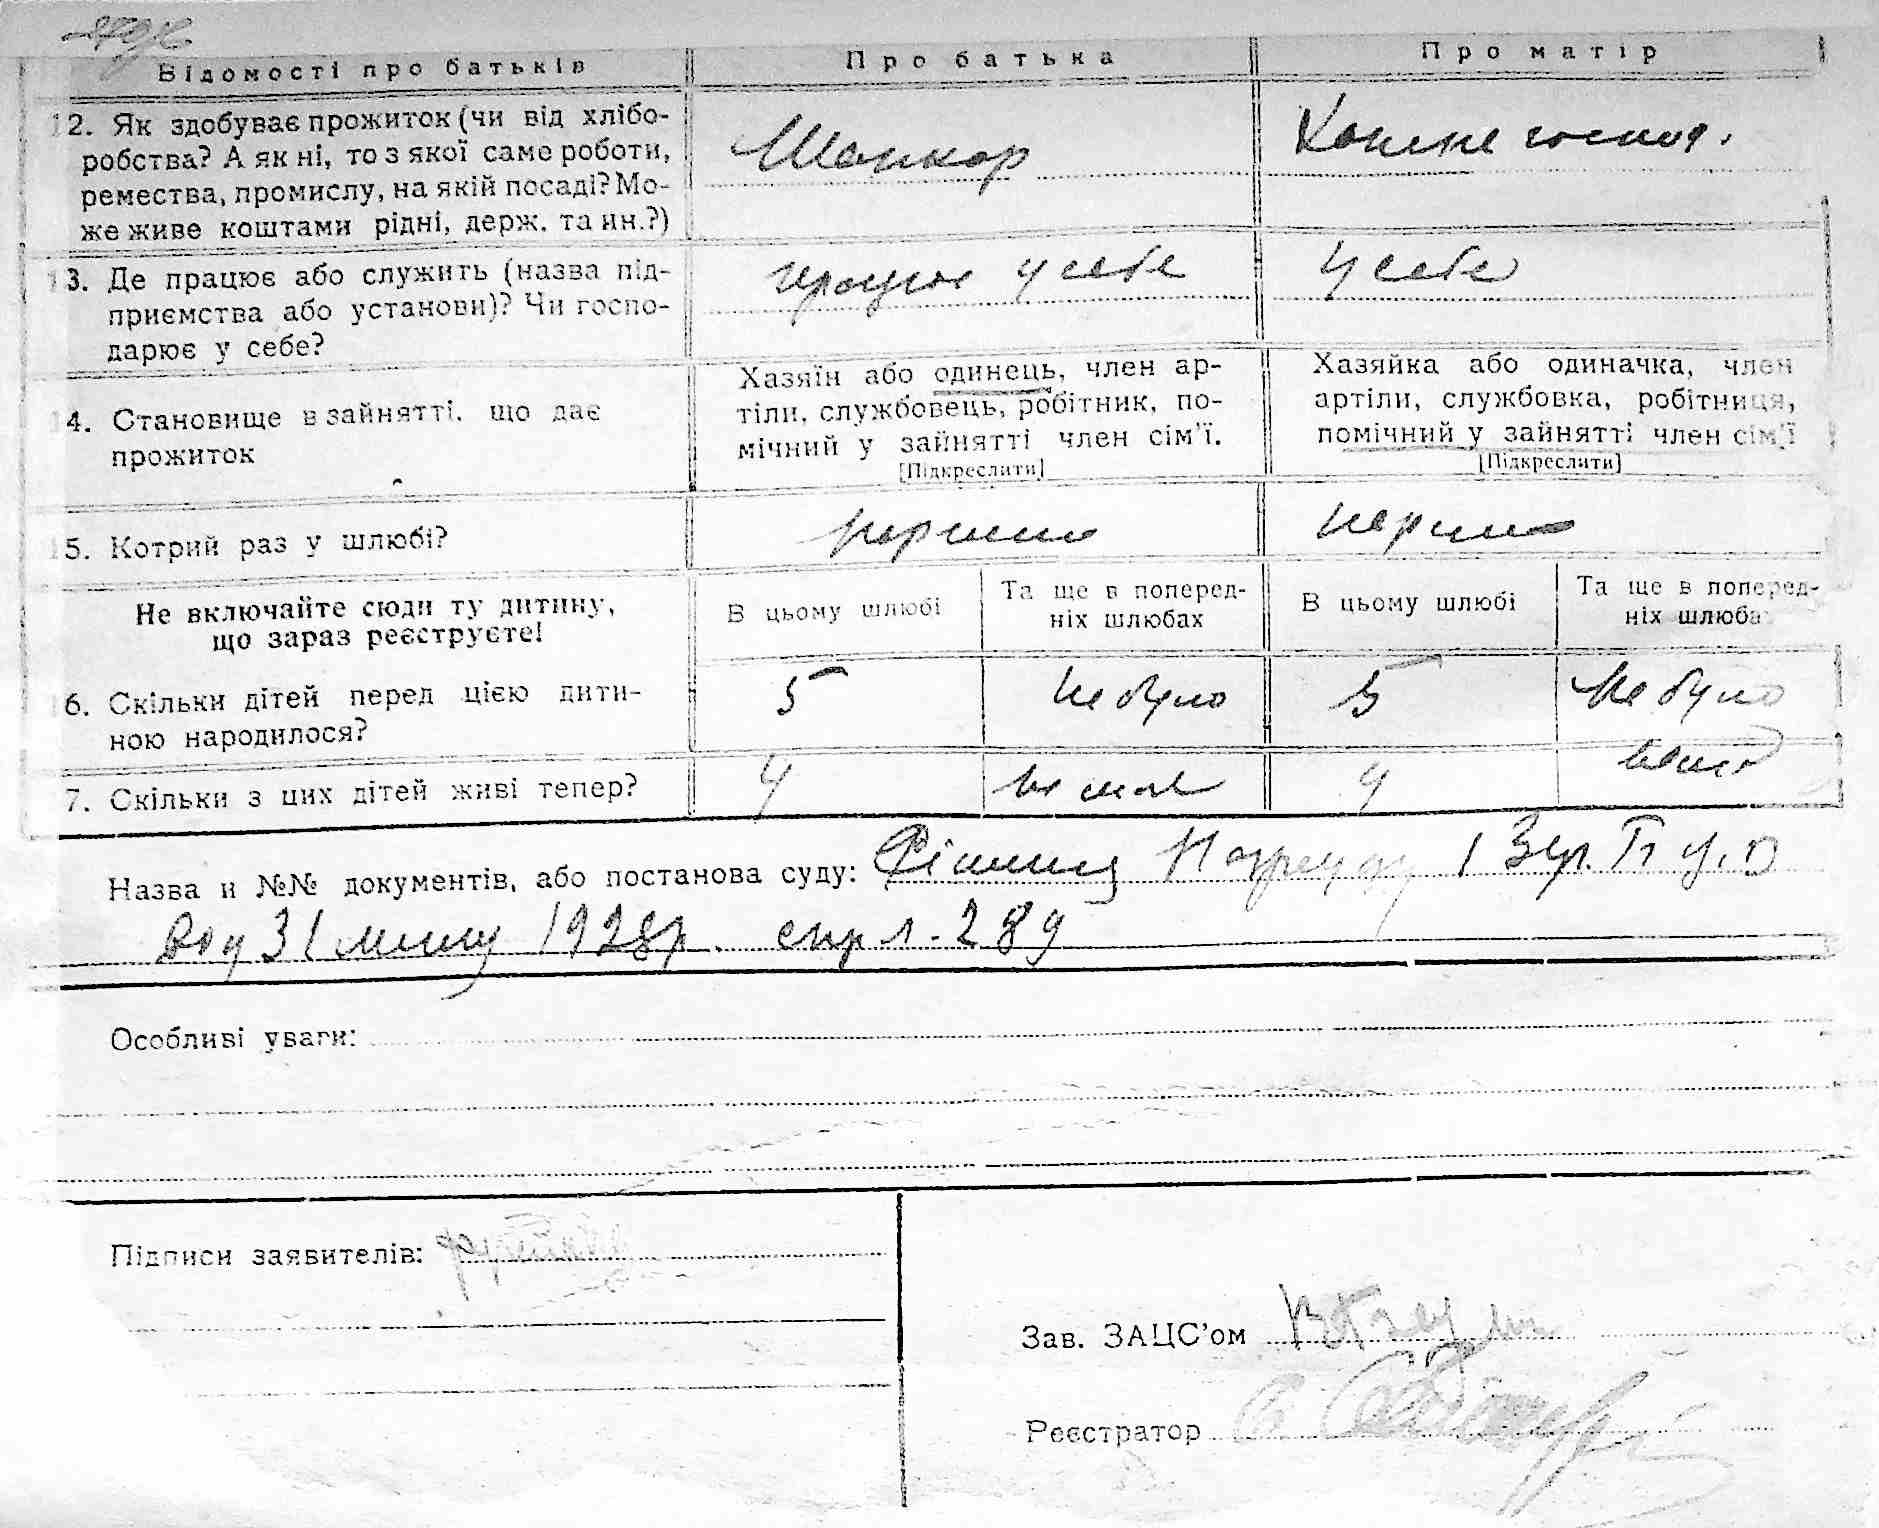 Відомості про батьків
Про батька
Про матір
12. Як здобуває прожиток (чи від хлібо-
робства? А як ні, то з якої саме роботи,
ремества, промислу, на якій посаді? Мо-
же живе коштами рідні, держ. та ин.?)
Шапкар
13. Де працює або служить (назва під-
приємства або установи)? Чи госпо-
дарює у себе?
працює у себе
у себе
14. Становище в зайнятті, що дає
прожиток
Хазяїн або одинець, член ар-
тіли, службовець, робітник, по-
мічний у зайнятті член сім'ї.
[Підкреслити]
Хазяйка або одиначка, член
артіли, службовка, робітниця,
помічний у зайнятті член сім'ї
[Підкреслити]
15. Котрий раз у шлюбі?
перший
перший
Не включайте сюди ту дитину,
що зараз реєструєте!
В цьому шлюбі
Та ще в поперед-
ніх шлюбах
В цьому шлюбі
Та ще в поперед-
ніх шлюбах
16. Скільки дітей перед цією дити-
ною народилося?
5
не було
5
не було
7. Скільки з цих дітей живі тепер?
4
немає
4
Назва й №№ документів, або постанова суду:
від 31 1928р. 289
Особливі уваги:
Підписи заявителів:
Зав. ЗАЦС'ом
Реєстратор